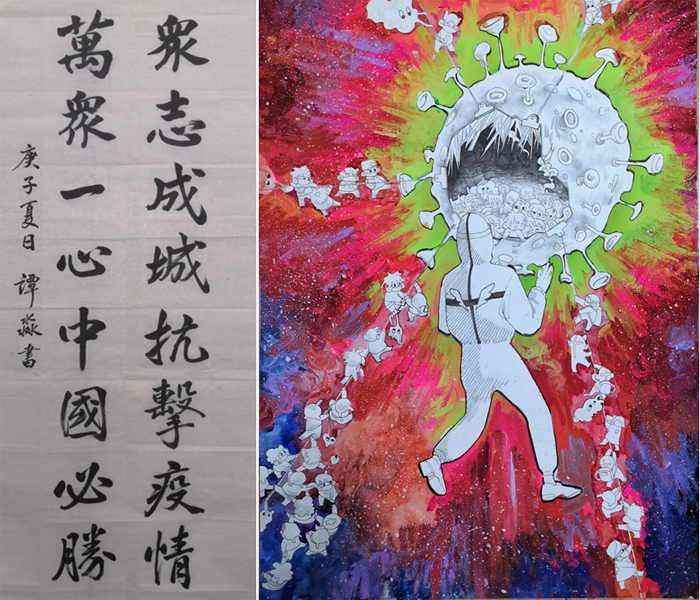 衆志成城抗擊疫情
萬衆一心中國必勝
庚子夏日 譚淼書